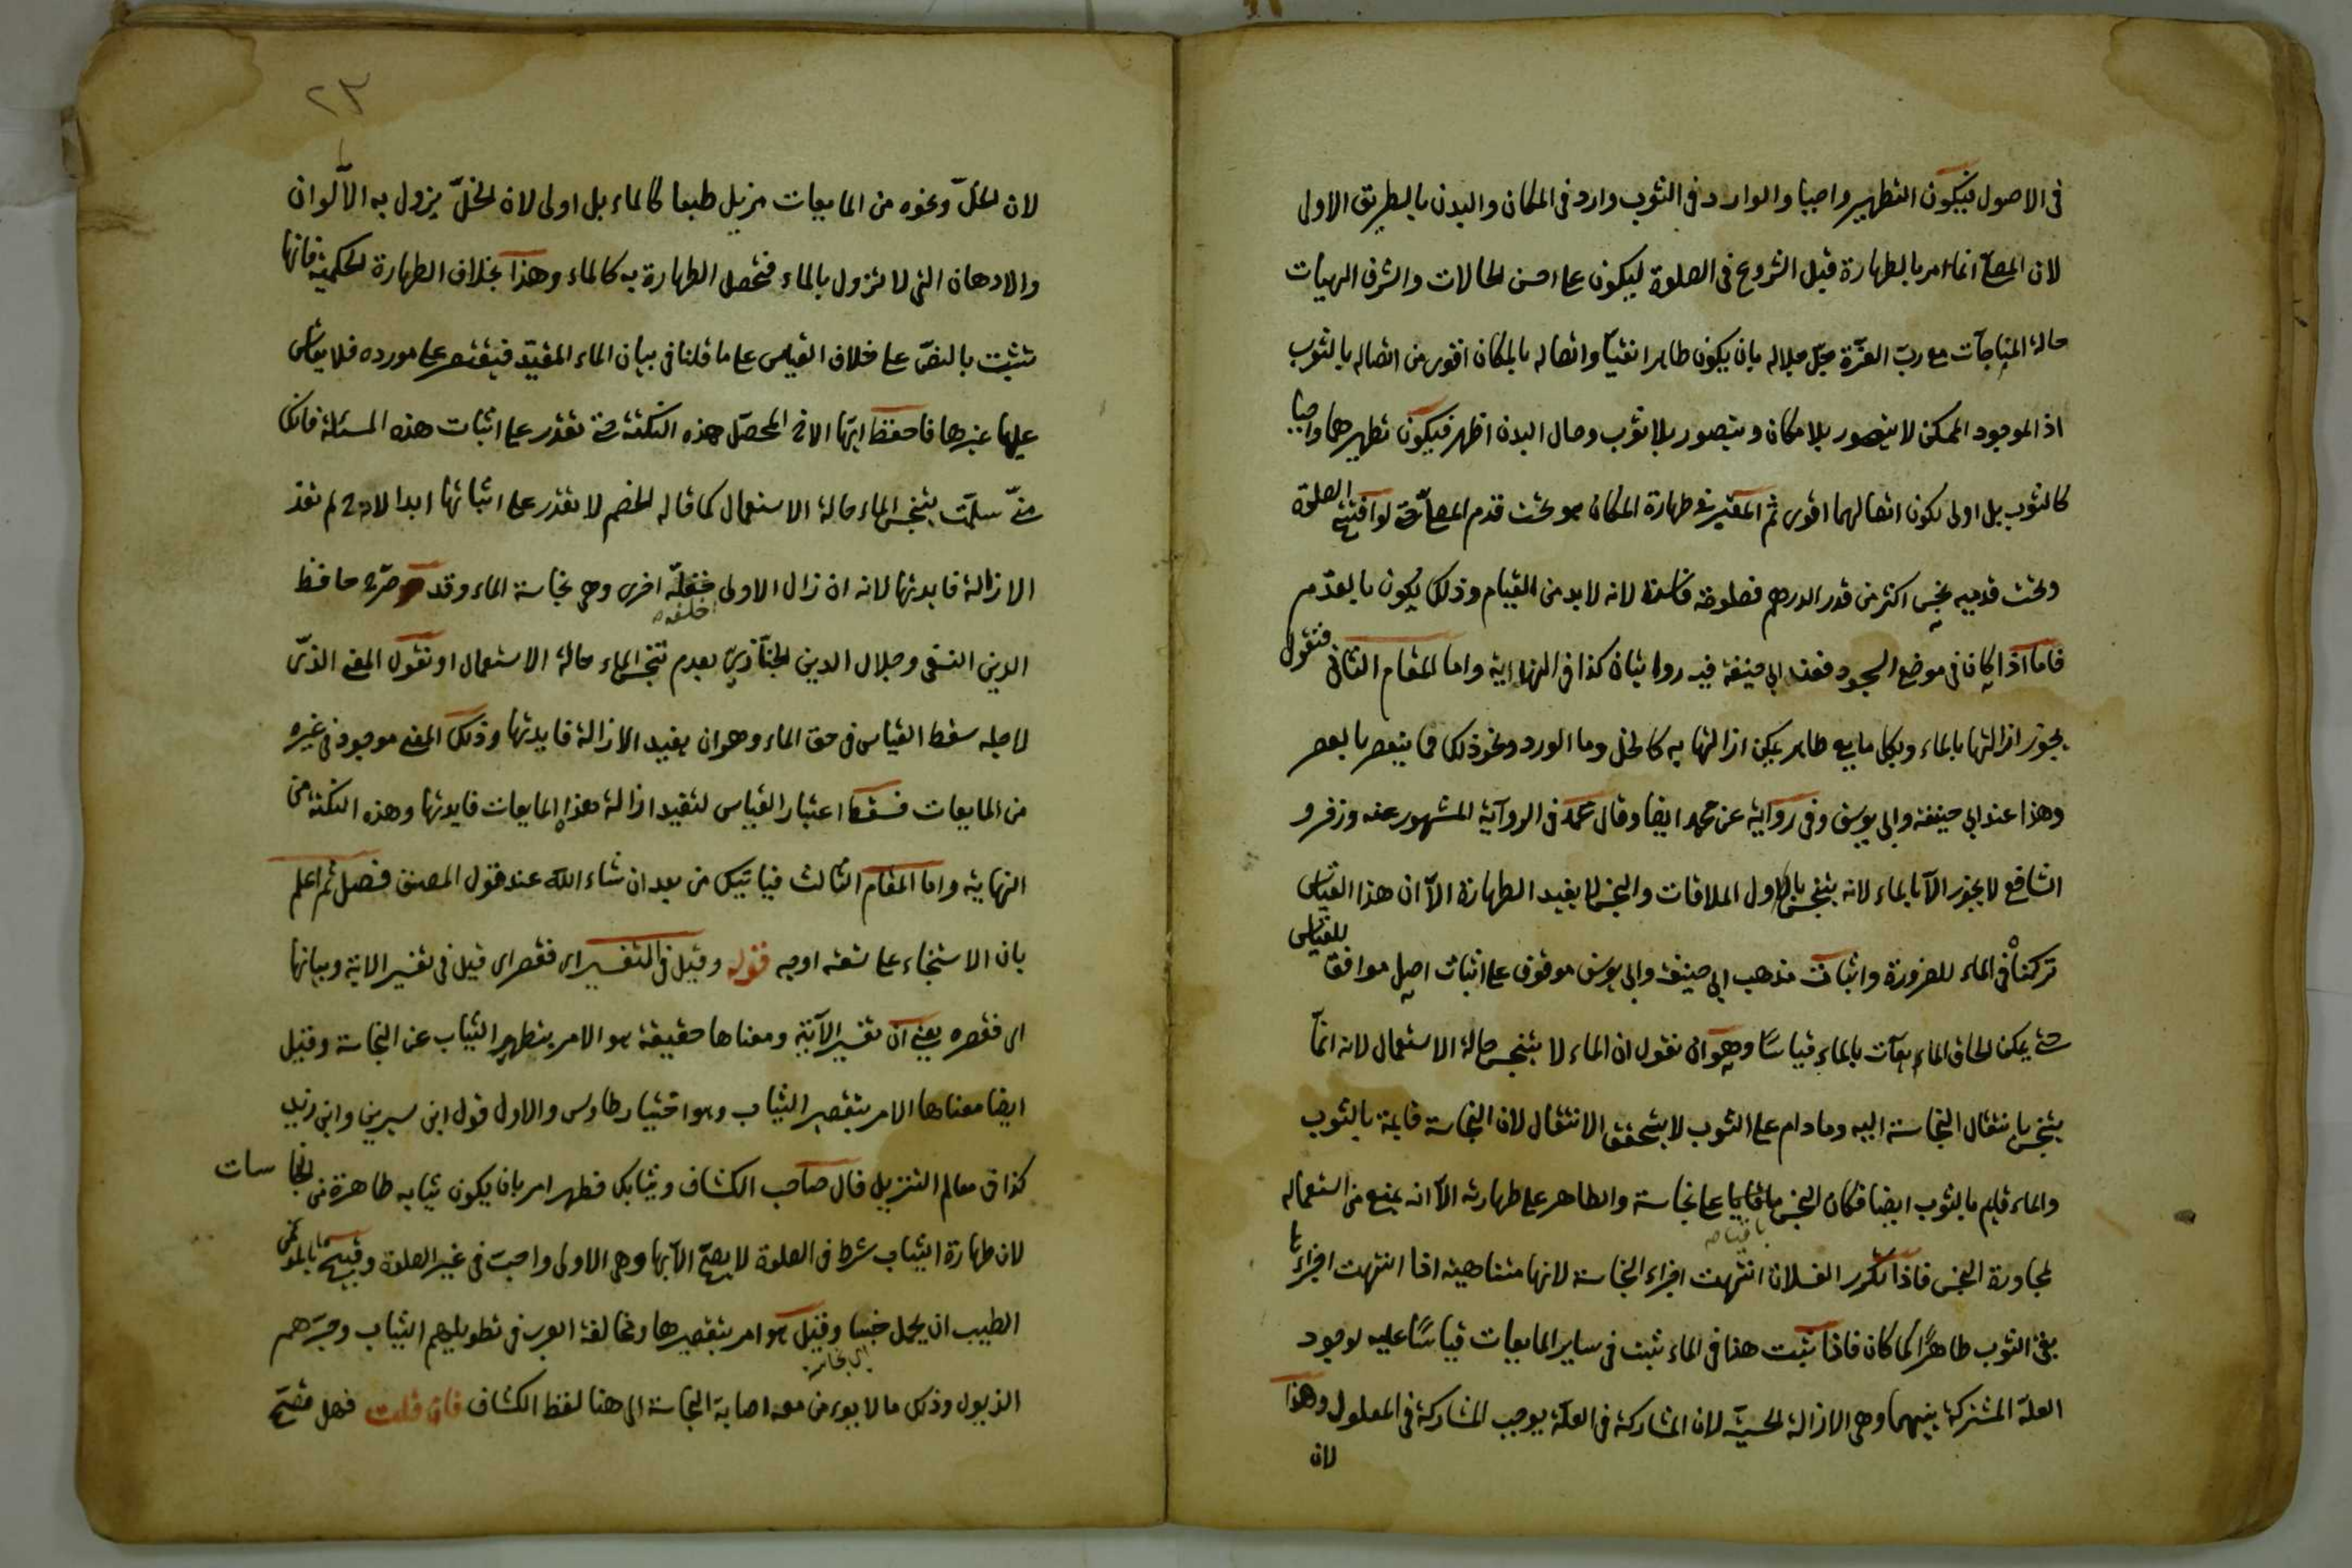 فى الاصول فيكون التطهير واجبا والوارد فى الثوب وارد فى المكان والبدن بالطريق الاولى
لان المصلّى انما امر بالطهارة قبل الشروع فى الصلوة ليكون على احسن الحالات واشرف الهيات
حالة المناجآت مع ربّ العزّة جلّ جلاله بان يكون طاهرا نقيّا واتصاله بالمكان اقوى من اتصاله بالثوب
اذ الموجود الممكن لا يتصور بلا مكان ويتصور بلا ثوب وحال البدن اظهر فيكون تطهيرهما واجبا
كالثوب بل اولى لكون اتصالهما اقوى ثم المعتبر فى طهارة المكان هو تحت قدم المصلّى حتى لو افتتح الصلوة
وتحت قدميه نجس اكثر من قدر الدرهم فصلوته فاسدة لانه لا بد من القيام وذلك يكون بالقدم
فاما اذا كان فى موضع السجود فعند ابى حنيفة فيه روايتان كذا فى النهاية واما المقام الثانى فنقول
يجوز ازالتها بالماء وبكل مايع طاهر يمكن ازالتها به كالخل وما الورد ونحو ذلك مما ينعصر بالعصر
وهذا عند ابى حنيفة وابى يوسف وفى رواية عن محمد ايضا وقال محمد فى الرواية المشهور عنه وزفر و
الشافع لا يجوز الآ بالماء لانه يتنجس باول الملاقات والنجس لا يفيد الطهارة الآ ان هذا القياس
تركناه فى الماء للضرورة واثبات مذهب ابى حنيفة وابى يوسف موقوف على اثبات اصل موافق للقياس
حتى يمكن الحاق المايعآت بالماء قياسًا وهو ان نقول ان الماء لا يتنجس حالة الاستعمال لانه انما
يتنجس بانتقال النجاسة اليه وما دام على الثوب لا يتحقق الانتقال لان النجاسة قايمة بالثوب
والماء قايم بالثوب ايضا فكان النجس باقيا على نجاسة والطاهر على طهارته الآ انه يمنع من استعماله
باقيا صح
لمجاورة النجس فاذا تكرر الغسلات انتهت اجزاء النجاسة لانها متناهية اذا انتهت اجزاءها
بقى الثوب طاهرًا كما كان فاذا ثبت هذا فى الماء ثبت فى ساير المايعات قياسًا عليه لوجود
العلّة المشتركة بينهما وهى الازالة الحسيّة لان المشاركة فى العلّة يوجب المشاركة فى المعلول وهذا
لان
٢٣
لان الخلّ ونحوه من المايعات مزيل طبعا كالماء بل اولى لان الخلّ يزول به الآلوان
والادهان التى لا تزول بالماء فتحصل الطهارة به كالماء وهذا بخلاف الطهارة الحكمية فانها
تثبت بالنصّ على خلاف القياس على ما قلنا فى بيان الماء المقيّد فيقتصر على مورده فلا يقاس
عليها غيرها فاحفظ ايّها الاخ المحصّل هذه النكتة حتى تقدر على اثبات هذه المسئلة فانك
متى سلّمت بتنجس الماء حالة الاستعمال كما قاله الخصم لا تقدر على اثباتها ابدا لم تفد
الازالة فايدتها لانه ان زال الاولى اخرى وهى نجاسة الماء وقد صرّح حافظ
خلفه صح
الدين النسفى وجلال الدين الخبّازىّ بعدم تنجس الماء حالة الاستعمال او نقول المعنى الذّى
لاجله سقط القياس فى حق الماء وهو ان يفيد الازالة فايدتها وذلك المعنى موجود فى غيره
من المايعات فسقط اعتبار القياس لتفيد ازالة هذه المايعات فايدتها وهذه النكتة من
النهاية واما المقام الثالث فياتيك من بعد ان شاء الله عند قول المصنف فصل ثم اعلم
بان الاستنجاء على تسعة اوجه قوله وقيل فى التفسير اى فقصر اى قيل فى تفسير الاية وبيانها
اى فقصره يعنى ان تفسير الآية ومعناها حقيقة هو الامر بتطهير الثياب عن النجاسة وقيل
ايضا معناها الامر بتقصير الثياب وهو اختيار طاوس والاول قول ابن سيرين وابن زيد
كذا فى معالم التنزيل قال صاحب الكشاف وثيابك فطهر امر بان يكون ثيابه طاهرة من النجاسات
لان طهارة الثياب شرط فى الصلوة لا يصحّ الآ بها وهى الاولى واحبّ فى غير الصلوة وقبيح بالمؤمن
الطيب ان يحمل خبثا وقيل هو امر بتقصيرها ومخالفة العرب فى تطويلهم الثياب وجرّهم
اى نجاسة
الذيول وذلك ما لا يومن معه اصابة النجاسة الى هنا لفظ الكشاف فان قلت فهل تصحّ